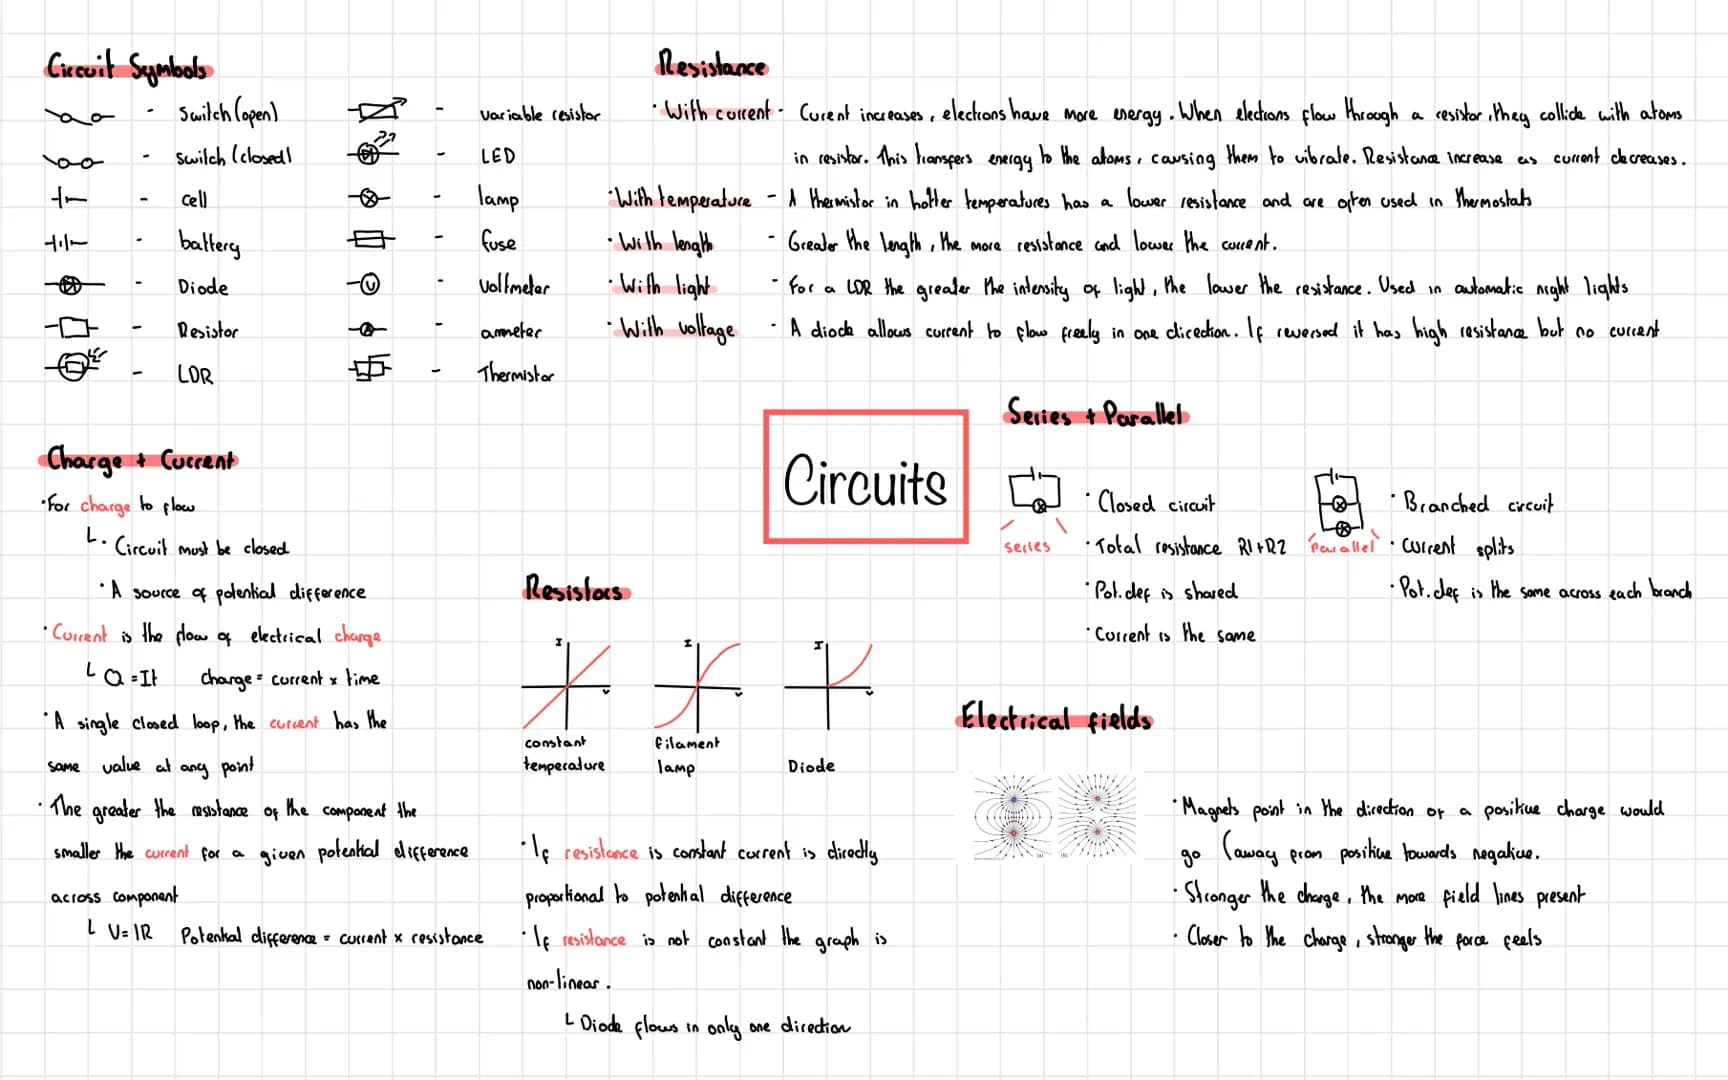 Circuit Symbols
- Switch (open)
- switch (closed)
- cell
- battery
- Diode
- Resistor
- LDR
- variable resistor
- LED
- lamp
- fuse
- voltmeter
- ammeter
- Thermistor
Resistance
· With current - Curent increases, electrons have more energy. When electrons flow through a resistor, they collide with atoms
in resistor. This transfers energy to the atoms, causing them to vibrate. Resistance increase as current decreases.
· With temperature - A thermistor in hotter temperatures has a lower resistance and are often used in thermostats
· With length - Greater the length, the more resistance and lower the current.
· With light - For a LDR the greater the intensity of light, the lower the resistance. Used in automatic night lights
· With voltage - A diode allows current to flow freely in one direction. If reversed it has high resistance but no current
Circuits
Charge + Current
· For charge to flow
· Circuit must be closed
· A source of potential difference
· Current is the flow of electrical charge
Q = It charge = current x time
· A single closed loop, the current has the
same value at any point
· The greater the resistance of the component the
smaller the current for a given potential difference
across component
V = IR Potential difference = current x resistance
Resistors
I
V
constant
temperature
I
V
filament
lamp
I
V
Diode
· If resistance is constant current is directly
proportional to potential difference
· If resistance is not constant the graph is
non-linear.
Diode flows in only one direction
Series + Parallel
series
· Closed circuit
· Total resistance R1+R2
· Pot. def is shared
· Current is the same
Parallel
· Branched circuit
· Current splits
· Pot. def is the same across each branch
Electrical fields
· Magnets point in the direction of a positive charge would
go (away from positive towards negative.
· Stronger the charge, the more field lines present
· Closer to the charge, stronger the force feels